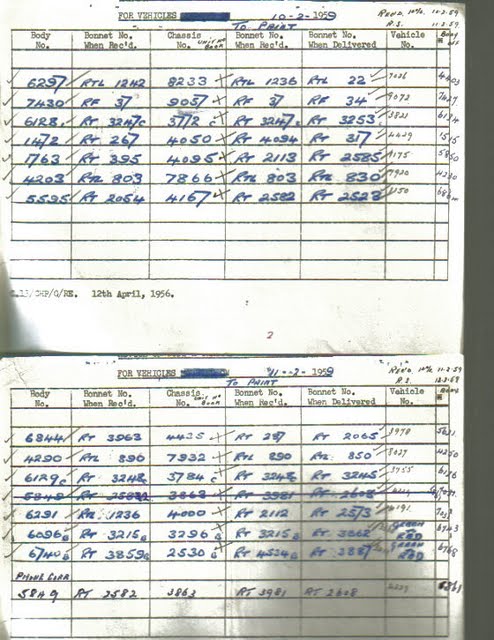 FOR VEHICLES 10-2-1959 REND. 10/2 11-2-59
TO PAINT R.S. 11-2-59
Body No. Bonnet No. When Rec'd. Chassis No. Unit No Book Bonnet No. When Rec'd. Bonnet No. When Delivered Vehicle No.
6297 RTL 1242 8233 RTL 1236 RTL 22 4403
7430 RF 37 9057 RF 37 RF 34 9072 7427
6128c RT 3247c 3772 c RT 3247c RT 3253 3821 6134
1472 RT 267 4050 RT 4094 RT 317 4429 1515
1763 RT 395 4095 RT 2113 RT 2585 4175 5850
4203 RTL 803 7866 RTL 803 RTL 830 7920 4230
5595 RT 2054 4167 RT 2582 RT 2523
12th April, 1956.
2
FOR VEHICLES 11-2-1959 REND. 10/2 11-2-59
TO PAINT R.S. 12-2-59
Body No. Bonnet No. When Rec'd. Chassis No. Unit No Book Bonnet No. When Rec'd. Bonnet No. When Delivered Vehicle No.
6844 RT 3963 4435 RT 237 RT 2065 3978
4290 RTL 890 7932 RTL 890 RTL 850 8027 4250
6129c RT 3248c 3784 c RT 3248c RT 3245 3755 6126
5849 3863 RT 3981 RT 2608
6291 RTL 1236 4000 RT 2112 RT 2573 4191
6096G RT 3215G 3296 G RT 3215G RT 3062 GREEN TO RED 6743
6740G RT 3859G 2530 G RT 4534G RT 3887 GREEN TO RED 6768
PHONE CLEAR
5849 RT 2582 3863 RT 3981 RT 2608